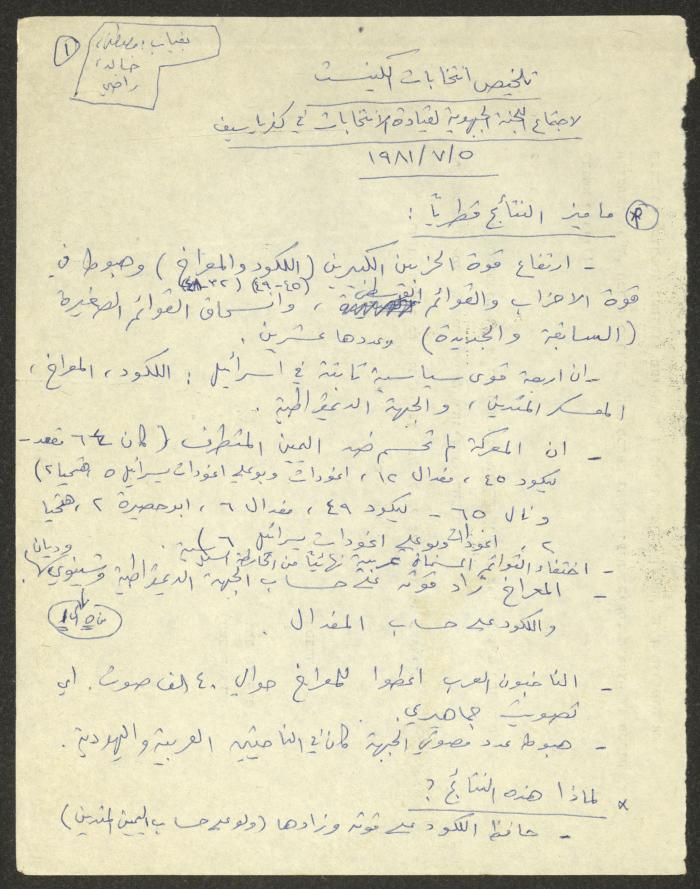 ١
بغياب: مصطفى،
خالد،
راضي
تلخيص انتخابات الكنيست
لاجتماع اللجنة الجبهوية لقيادة الانتخابات في كفرياسيف
١٩٨١/٧/٥
ما ميز النتائج قطريًا :
- ارتفاع قوة الحزبين الكبيرين (الليكود والمعراخ) وهبوط في
(٤٥-٤٩) (٣٢-٤٨)
قوة الاحزاب والقوائم ، وانسحاق القوائم الصغيرة
(السابقة والجديدة) وعددها عشرين .
- ان اربعة قوى سياسية ثابتة في اسرائيل : الليكود ، المعراخ ،
المعسكر المتدين ، والجبهة الدمقراطية .
- ان المعركة لم تحسم ضد اليمين المتطرف (كان ٦٤ مقعد -
ليكود ٤٥ ، مفدال ١٢ ، اغودات وبوعلي اغودات يسرائيل ٥ هتحيا ٢)
ونال ٦٥ - ليكود ٤٩ ، مفدال ٦ ، ابوحصيرة ٢ ، هتحيا
٢ ، اغودات وبوعلي اغودات يسرائيل ٦)
- اختفاء القوائم المسماة عربية نهائيًا من الخارطة السياسية .
- المعراخ زاد قوته على حساب الجبهة الدمقراطية وشينوي وديان
من ٥ الى ١
والليكود على حساب المفدال .
- الناخبون العرب اعطوا للمعراخ حوالي ٤٠ الف صوت . اي
تصويت جماهيري .
- هبوط عدد مصوتي الجبهة كان في الناحيتين العربية واليهودية .
× لماذا هذه النتائج ؟
- حافظ الليكود على قوته وزادها (ولو على حساب اليمين المتدين)